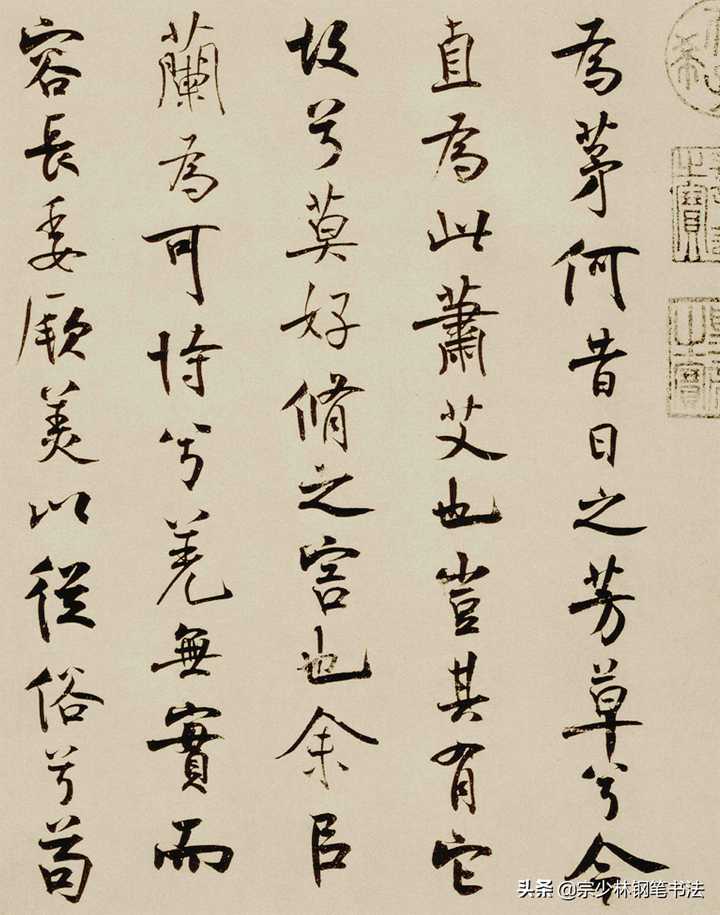 為茅何昔日之芳草兮今
直為此蕭艾也豈其有它
故兮莫好脩之害也余㠯
蘭為可恃兮羌無實而
容長委厥美以從俗兮苟
头条 @宗少林钢笔书法